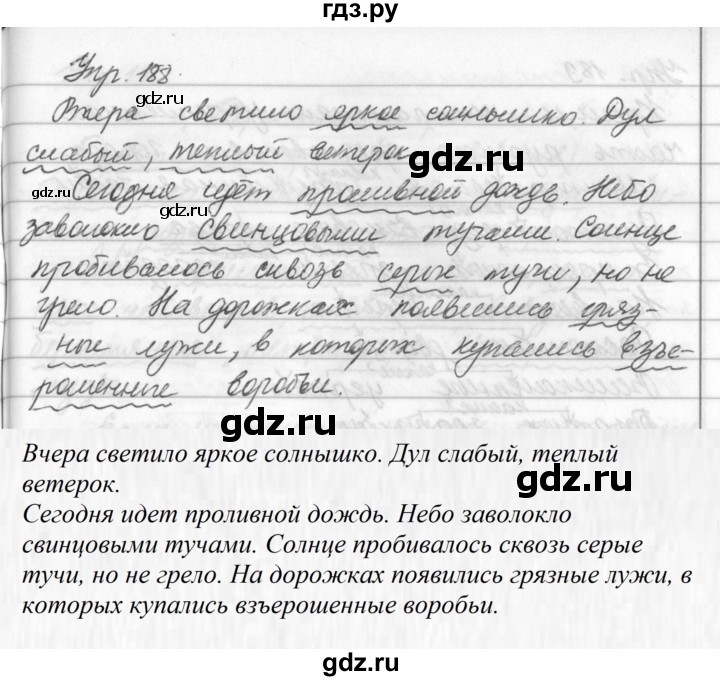 гдз.ру
Упр. 188.
gdz.ru
Вчера светило яркое солнышко. Дул
gdz.ru
слабый, теплый ветерок.
gdz.ru
gdz.ru
Сегодня идёт проливной дождь. Небо
gdz.ru
заволокло свинцовыми тучами. Солнце
пробивалось сквозь серые тучи, но не
грело. На дорожках появились гряз-
ные лужи, в которых купались взъе-
рошенные воробьи.
gdz.ru
Вчера светило яркое солнышко. Дул слабый, теплый
ветерок.
gdz.ru
Сегодня идет проливной дождь. Небо заволокло
свинцовыми тучами. Солнце пробивалось сквозь серые
тучи, но не грело. На дорожках появились грязные лужи, в
которых купались взъерошенные воробьи.
gdz.ru